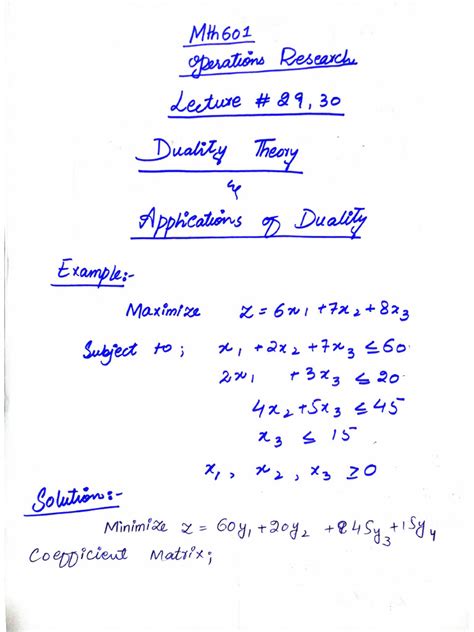 Mth601
Operations Research
Lecture # 29, 30
Duality Theory
&
Applications of Duality
Example:-
Maximize z = 6x1 + 7x2 + 8x3
Subject to; x1 + 2x2 + 7x3 ≤ 60
2x1 + 3x3 ≤ 20
4x2 + 5x3 ≤ 45
x3 ≤ 15
x1, x2, x3 ≥ 0
Solution:-
Minimize z = 60y1 + 20y2 + 45y3 + 15y4
Coefficient Matrix;